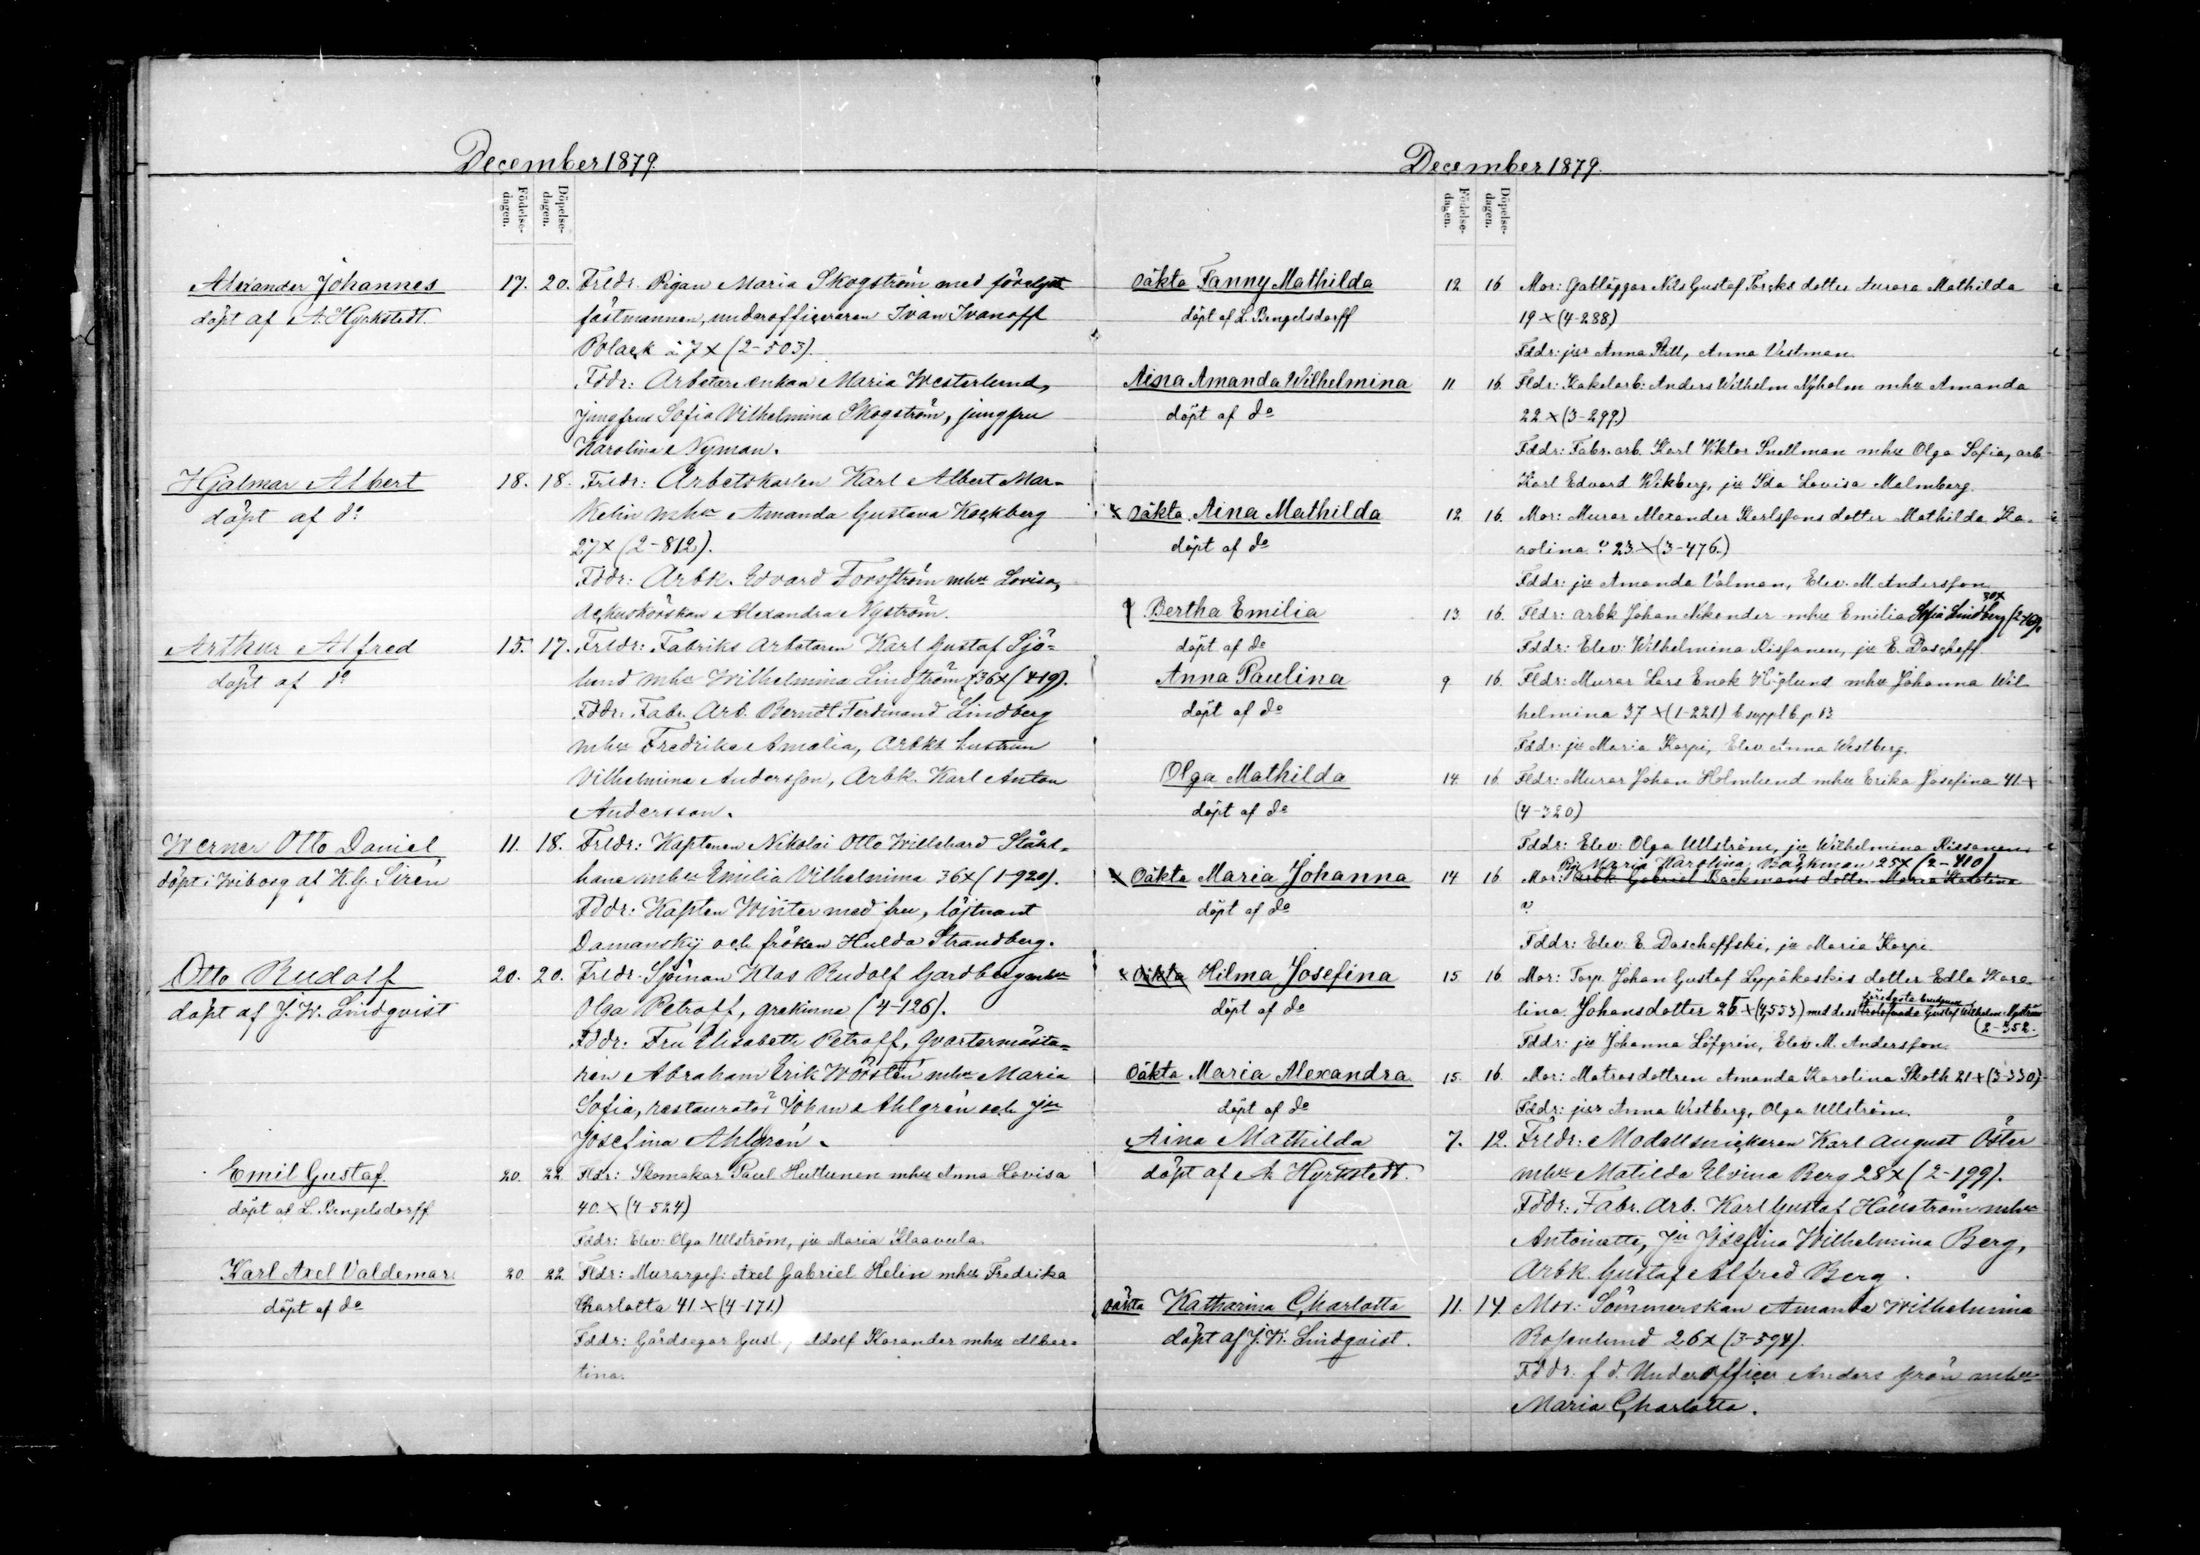 December 1879.
Födelse-
dagen.
Döpelse-
dagen.
Alexander Johannes 17. 20. Frldr. Pigan Maria Skogström med förelgde
döpt af A. Hyrkstedt. fästmannen, underofficeraren Ivan Ivanoff
Polack à 7 x (2-503).
Fddr: Arbetare enkan Maria Westerlund,
jungfrun Sofia Vilhelmina Skogström, jungfru
Karolina Nyman.
Hjalmar Albert 18. 18. Frldr: Arbetskarlen Karl Albert Mar-
döpt af do. kelin mhu Amanda Gustava Kockberg
27 x (2-812).
Fddr: Arbk. Edvard Forsström mhu Lovisa,
Alexandra Nyström.
Arthur Alfred 15. 17. Frldr: Fabriks Arbetaren Karl Gustaf Sjö-
döpt af do lund mhu Wilhelmina Lindström 36 x (419).
Fddr: Fabr. Arb. Berndt Ferdinand Lindberg
mhu Fredrika Amalia, Arbks hustrun
Vilhelmina Andersson, Arbk. Karl Anton
Andersson.
Werner Otto Daniel, 11. 18. Frldr: Kaptenen Nikolai Otto Willehard Stååhl-
döpt i Wiborg af K.G. Siren hane mhu Emilia Vilhelmina 36 x (1-920).
Fddr: Kapten Winter med fru, löjtnant
Damanskij och fröken Hulda Strandberg.
Otto Rudolf 20. 20. Frldr. Sjöman Klas Rudolf Gardberg mhu
döpt af J. W. Lindqvist Olga Petroff, grekinna (4-126).
Fddr: Fru Elisabeth Petroff, Qvartermästa-
ren Abraham Erik Worstén mhu Maria
Sofia, restaurator Johan Ahlgrén och jfu
Josefina Ahlgrén.
Emil Gustaf. 20. 22. Fldr: Skomakar Paul Huttunen mhu Anna Lovisa
döpt af L. Bengelsdorff 40. x (4-524)
Fddr: Elev: Olga Ullström, ju Maria Klaavula.
Karl Axel Valdemar. 20. 22. Fldr: Murargef: Axel Gabriel Helin mhu Fredrika
döpt af do Charlotta 41 x (4-171)
Fddr: Gårdsegar Gust, Adolf Korander mhu Alber-
tina.
December 1879.
Födelse-
dagen.
Döpelse-
dagen.
Oäkta Fanny Mathilda 12 16 Mor: Gatläggar Nils Gustaf dotter Aurora Mathilda
döpt af L. Bengelsdorff 19 x (4-288)
Fddr: jur Anna Anna Vestman.
Aina Amanda Wilhelmina 11 16. Fldr: Kakelarb: Anders Wilhelm Nyholm mhu Amanda
döpt af do 22 x (3-299.)
Fddr: Fabr. arb. Karl Viktor Snellman mhu Olga Sofia, arb
Karl Edvard Wikberg, ju Ida Lovisa Malmberg.
x Oäkta Aina Mathilda 12 16. Mor: Murar Alexander Karlssons dotter Mathilda Ka-
döpt af do rolina v 23 x (3-476.)
Fddr: ju Amanda Valman, Elev. M. Andersson
Bertha Emilia 13. 16. Fldr: Arbk Johan Nikander mhu Emilia Sofia Lindberg 30x
döpt af do Fddr: Elev: Wilhelmina Rissanen, ju E. Dascheff
Anna Paulina 9 16. Fldr: Murar Lars Enok Höglund mhu Johanna Wil-
döpt af do helmina 37 x (1-221) b. suppl b. p. 13.
Fddr: ju Maria Korpi, Elev Anna Westberg.
Olga Mathilda 14 16 Fldr: Murar Johan Holmlund mhu Erika Josefina 41 x
döpt af do (4-320)
Fddr: Elev: Olga Ullström, ju Wilhelmina Rissanen
Pig Maria Karolina Backman 25 x (2-410)
x Oäkta Maria Johanna 14 16 Mor: Arbk Gabriel Backmans dotter Maria Karolina
döpt af do v.
Fddr: Elev: E. Dascheffski, ju Maria Korpi
x Oäkta Hilma Josefina 15 16 Mor: Torp. Johan Gustaf Leppäkoskis dotter Edla Karo-
döpt af do lina Johansdotter 25 x (4,553) med dess Gustaf Wilhelm Nyström
2-352.
Fddr: ju Johanna Löfgren, Elev M. Andersson.
Oäkta Maria Alexandra 15. 16. Mor: Matrosdottren Amanda Karolina Skoth 21 x (3-330)
döpt af do Fddr: jur Anna Westberg, Olga Ullström.
Aina Mathilda 7. 12. Frldr: Modellsnickeren Karl August Öster
döpt af A. Hyrkstedt. mhu Matilda Elvina Berg 28 x (2-199).
Fddr: Fabr. Arb. Karl Gustaf Hällström mhu
Antoinette, Jfu Josefina Wilhelmina Berg,
Arbk. Gustaf Alfred Berg.
Oäkta Katharina Charlotta 11. 14. Mor: Sömmerskan Amanda Wilhelmina
döpt af J. W. Lindqvist. Rosenlund 26 x (3-594).
Fddr: f. d. Underofficer Anders Grön mhu
Maria Charlotta.